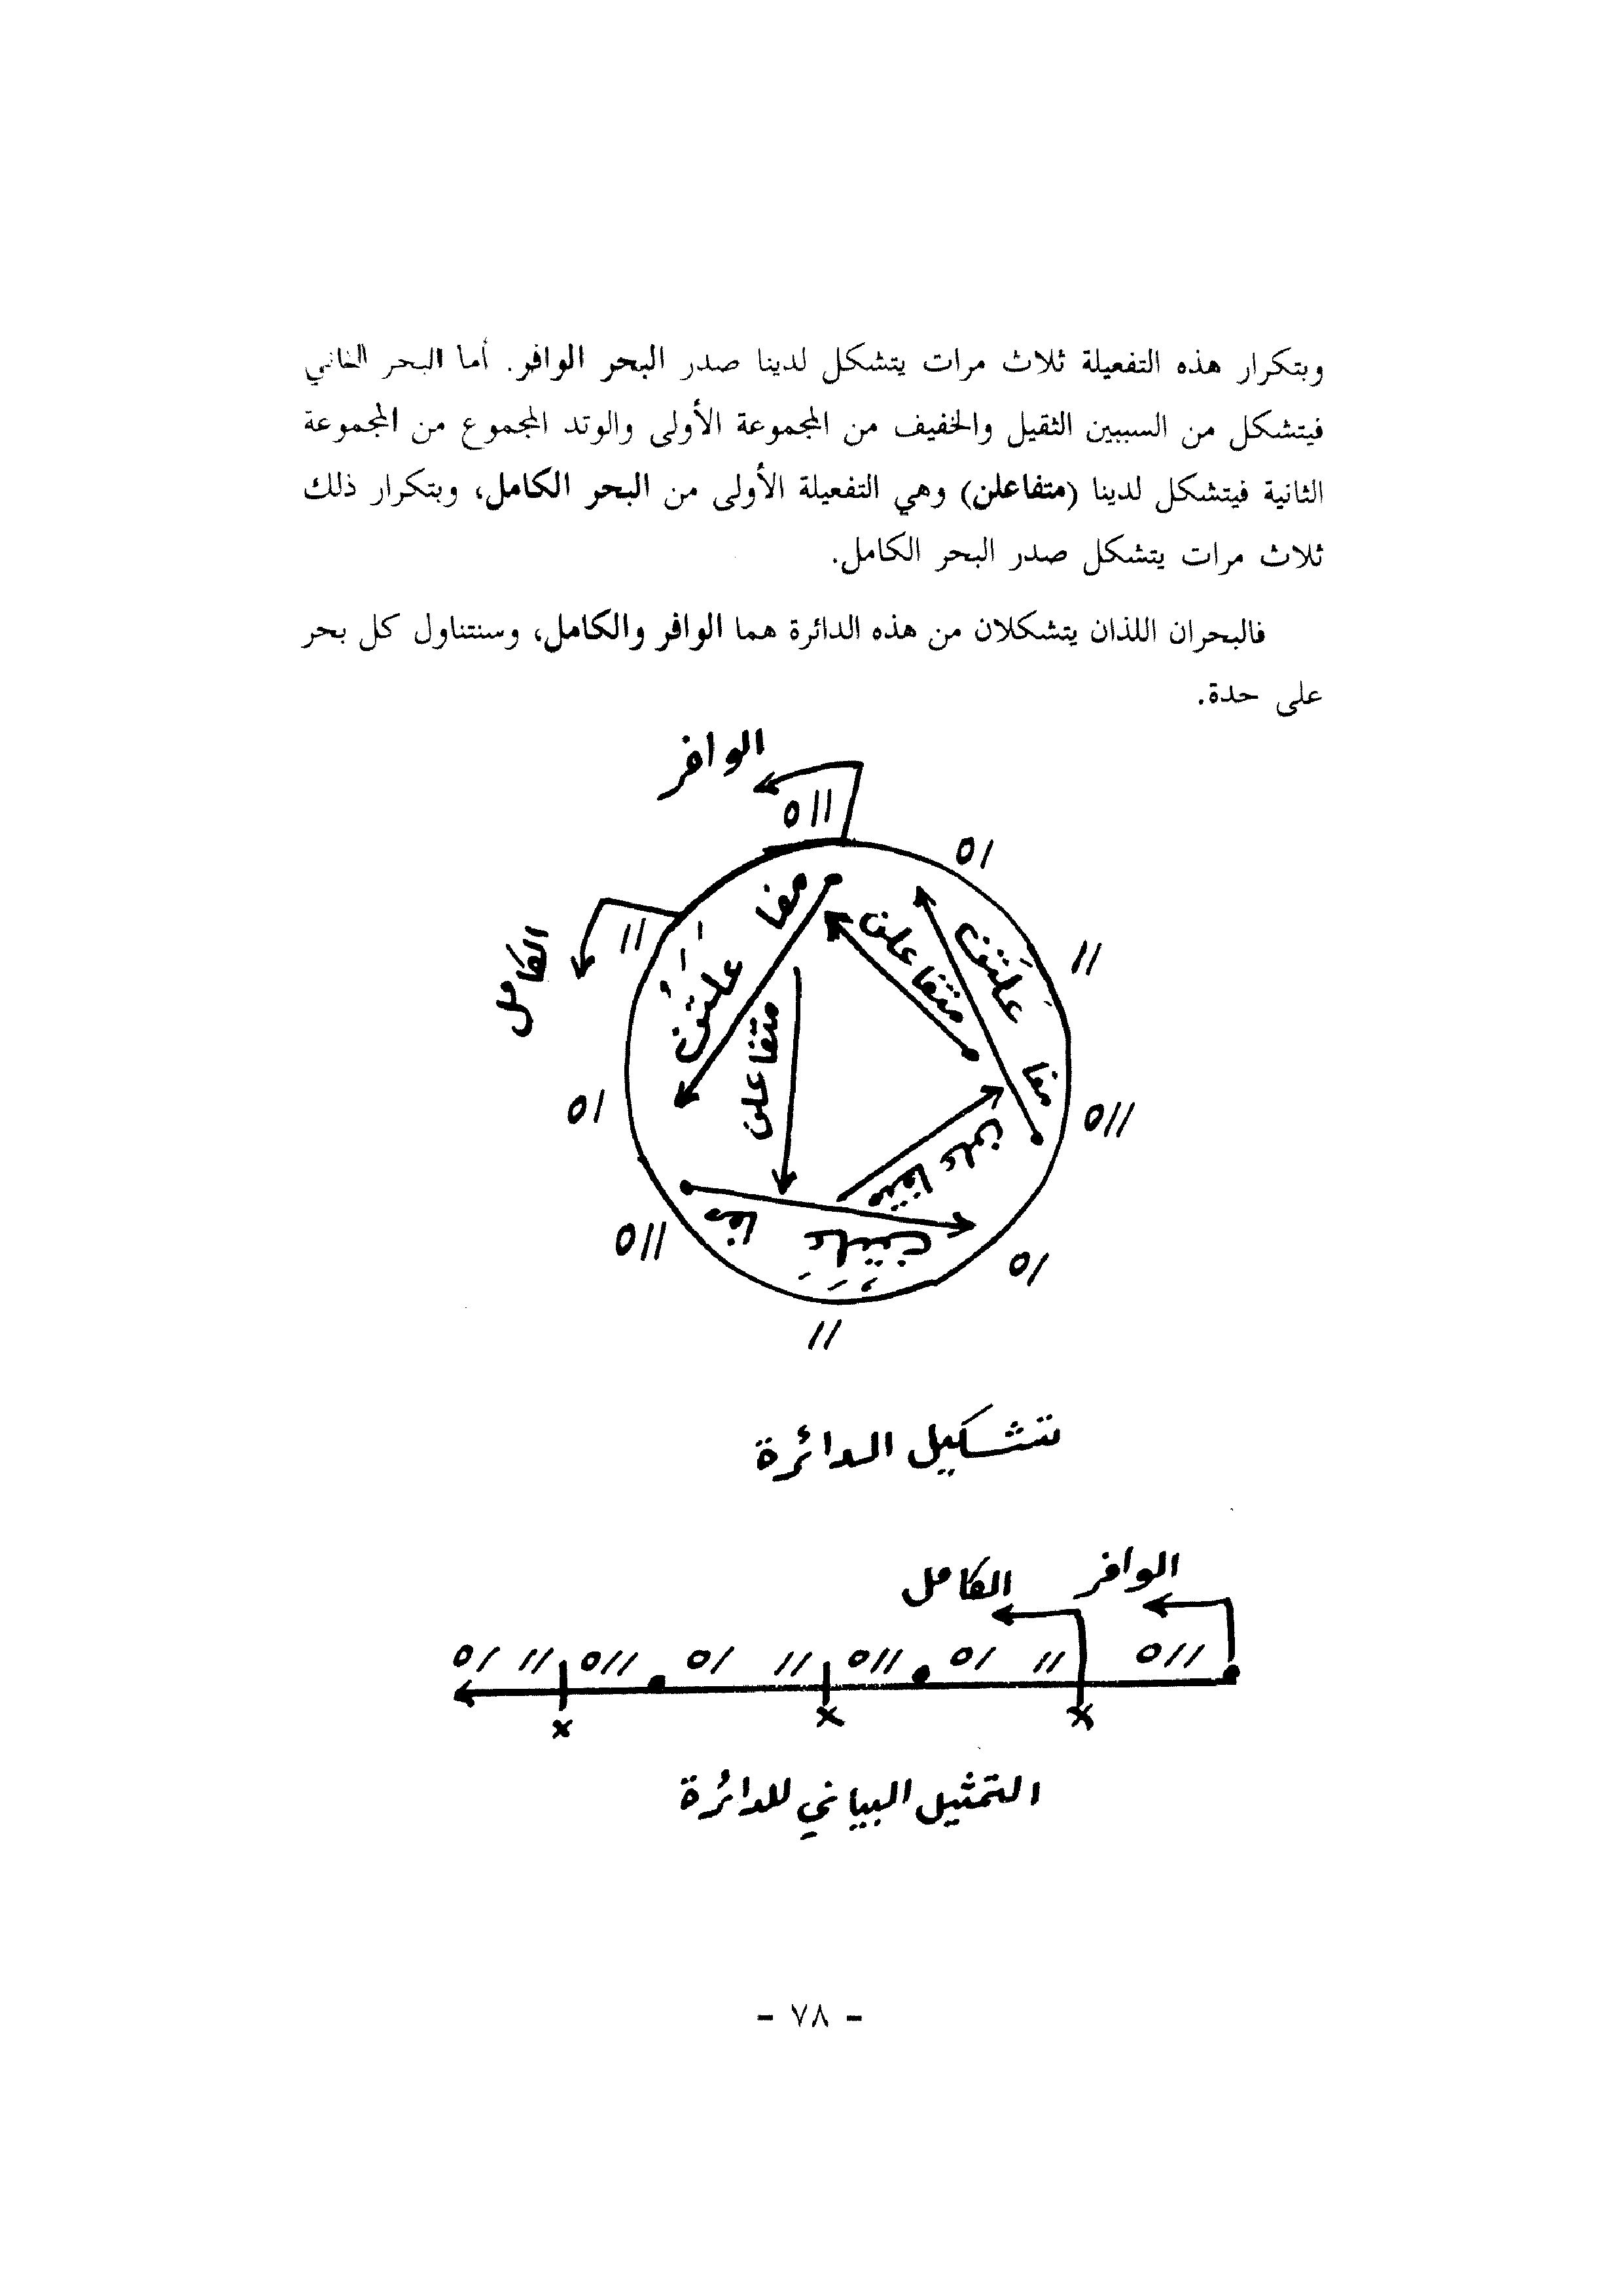 وبتكرار هذه التفعيلة ثلاث مرات يتشكل لدينا صدر البحر الوافر. أما البحر الثاني
فيتشكل من السببين الثقيل والخفيف من المجموعة الأولى والوتد المجموع من المجموعة
الثانية فيتشكل لدينا (متفاعلن) وهي التفعيلة الأولى من البحر الكامل، وبتكرار ذلك
ثلاث مرات يتشكل صدر البحر الكامل.
فالبحران اللذان يتشكلان من هذه الدائرة هما الوافر والكامل، وسنتناول كل بحر
على حدة.
الوافر
//٥
/٥
الكامل
//
//
مفا
علتن
متفاعلن
متفاعلن
علتن
مفا
/٥
//٥
متفاعلن
مفا
علتن
//٥
/٥
//
تشكيل الدائرة
الوافر
الكامل
//٥ // /٥ //٥ // /٥ //٥ // /٥
× × ×
التمثيل البياني للدائرة
- ٧٨ -